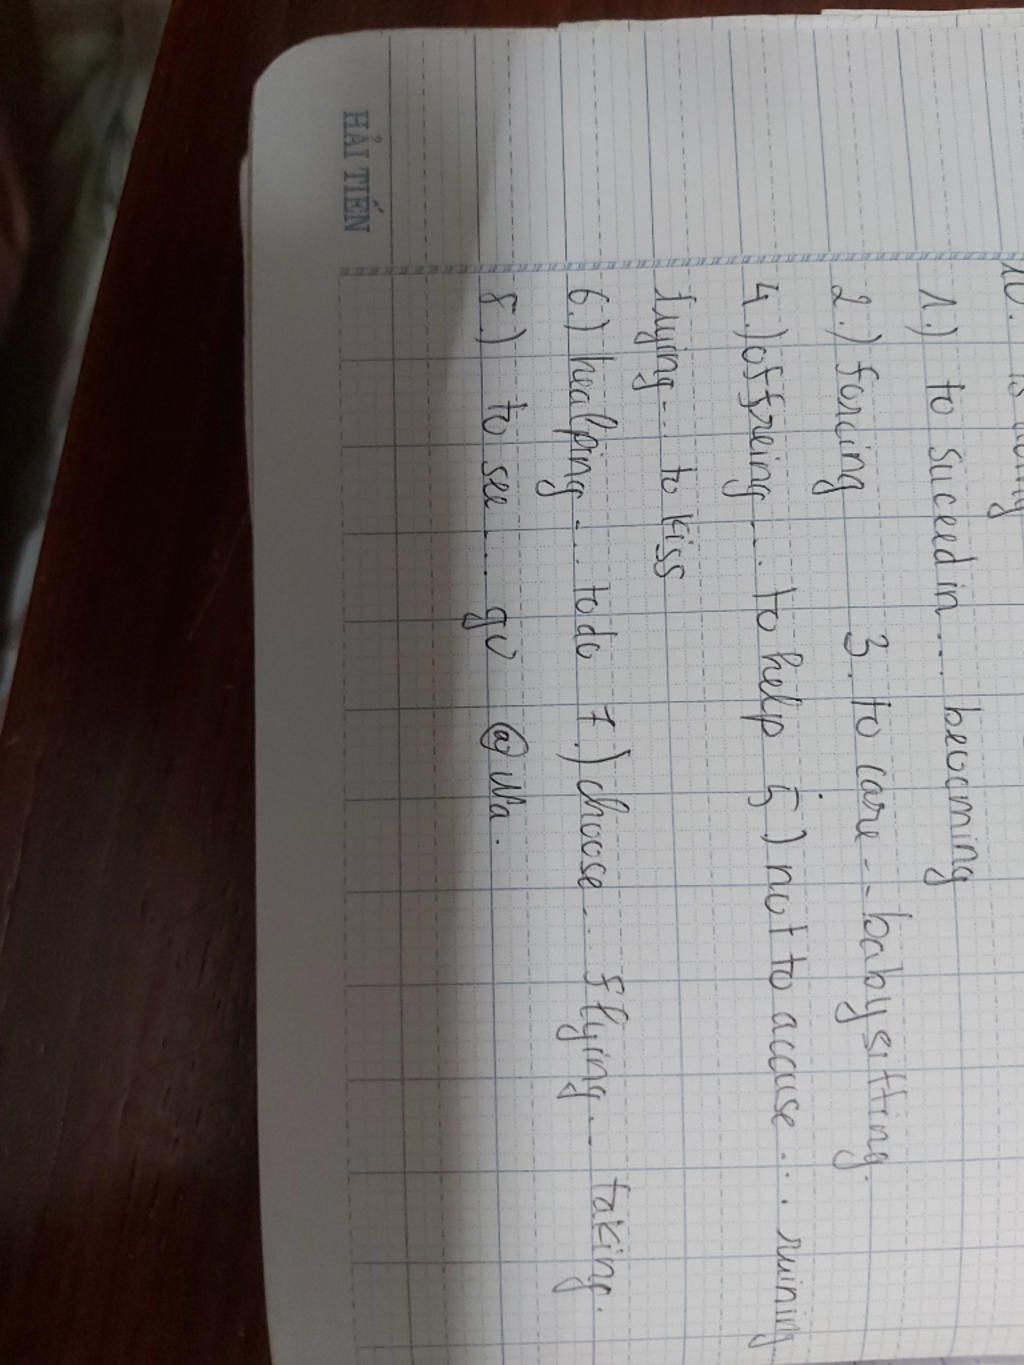 10. is doing
1.) to suceed in... becoming
2.) forcing 3. to care -- babysitting.
4.) offreing... to help 5) not to accuse... ruining
flying... to kiss
6.) healping... to do 7.) choose... flying... taking.
8.) to see... go
HẢI TIẾN